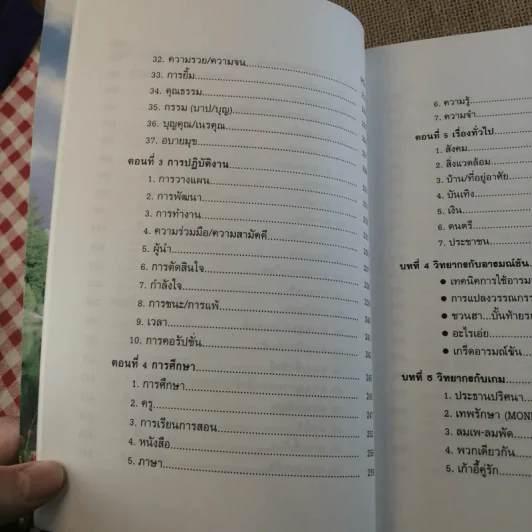 32. ความรวย/ความจน
33. การยิ้ม
34. คุณธรรม
35. กรรม (บาป/บุญ)
36. บุญคุณ/เนรคุณ
37. อบายมุข
ตอนที่ 3 การปฏิบัติงาน
1. การวางแผน
2. การพัฒนา
3. การทำงาน
4. ความร่วมมือ/ความสามัคคี
5. ผู้นำ
6. การตัดสินใจ
7. กำลังใจ
8. การชนะ/การแพ้
9. เวลา
10. การคอรัปชั่น
ตอนที่ 4 การศึกษา
1. การศึกษา
2. ครู
3. การเรียนการสอน
4. หนังสือ
5. ภาษา
6. ความรู้
7. ความจำ
ตอนที่ 5 เรื่องทั่วไป
1. สังคม
2. สิ่งแวดล้อม
3. บ้าน/ที่อยู่อาศัย
4. บันเทิง
5. เงิน
6. ดนตรี
7. ประชาชน
บทที่ 4 วิทยากรกับอารมณ์ขัน
● เทคนิคการใช้อารม
● การแปลงวรรณกร
● ชวนฮา...บั้นท้ายร
● อะไรเอ่ย
● เกร็ดอารมณ์ขัน
บทที่ 5 วิทยากรกับเกม
1. ประธานปริศนา
2. เทพรักษา (MON
3. ลมเพ-ลมพัด
4. พวกเดียวกัน
5. เก้าอี้คู่รัก